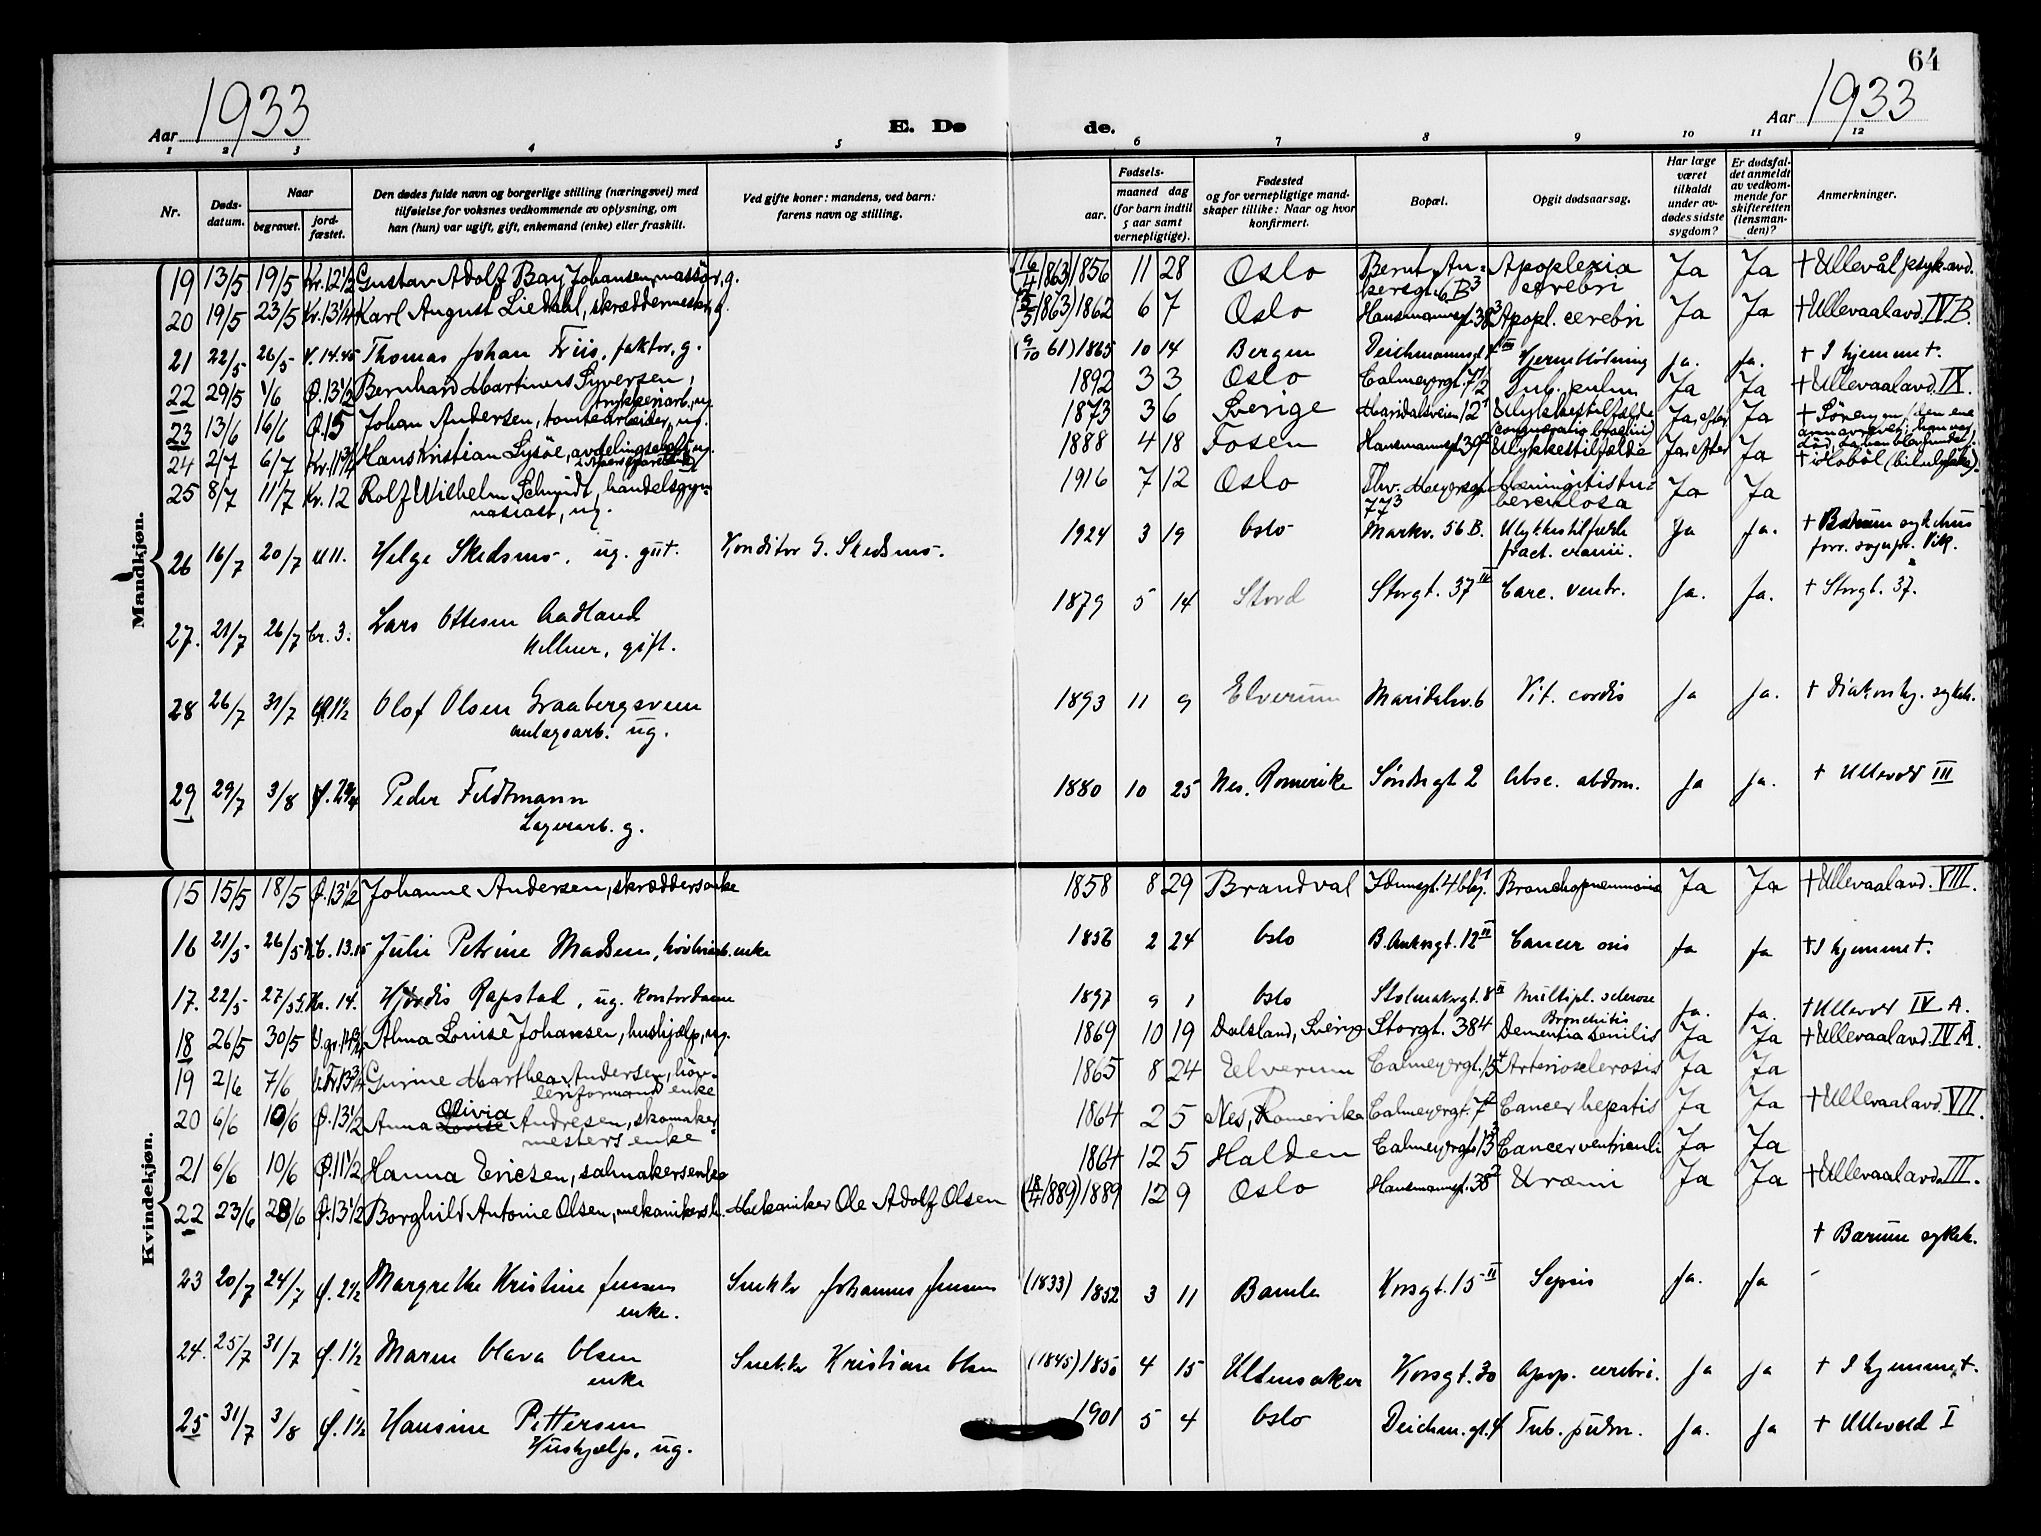 64
Aar 1933
E. Dø de.
Aar 1933
1 2 3 4 5 6 7 8 9 10 11 12
Nr.
Døds-
datum.
Naar
begravet.
jord-
fæstet.
Den dødes fulde navn og borgerlige stilling (næringsvei) med
tilføielse for voksnes vedkommende av oplysning, om
han (hun) var ugift, gift, enkemand (enke) eller fraskilt.
Ved gifte koner: mandens, ved barn:
farens navn og stilling.
Fødsels-
aar.
maaned dag
(for barn indtil
5 aar samt
vernepligtige).
Fødested
og for vernepligtige mand-
skaper tillike: Naar og hvor
konfirmert.
Bopæl.
Opgit dødsaarsag.
Har læge
været
tilkaldt
under av-
dødes sidste
sygdom?
Er dødsfal-
det anmeldt
av vedkom-
mende for
skifteretten
(lensman-
den)?
Anmerkninger.
Mandkjøn.
19 13/5 19/5 Kr. 12 1/2 Gustav Adolf Bay Johansen, massör, g. 1856 11 28 Oslo Bernt An-
kersgt. 6 B 3 Apoplexia
cerebri Ja Ja † Ullevål psyk. avd.
20 19/5 23/5 Kr. 13 1/4 Karl August Liedahl, skræddermester, g. (1863) 1862 6 7 Oslo Hausmannsgt. 38 Apopl. cerebri Ja Ja † Ullevaal avd. IV B.
21 22/5 26/5 V. 14.45 Thomas Johan Friis, faktor, g. (9/10 61) 1865 10 14 Bergen Deichmannsgt. Hjerneblödning Ja. Ja. † I hjemmet.
22 29/5 1/6 Ø. 13 1/2 Bernhard Martinius Syversen,
trykkeriarb., ug. 1892 3 3 Oslo Calmeyersgt. 7 2 Tub. pulm. Ja Ja † Ullevaal avd. IX.
23 13/6 16/6 Ø. 15 Johan Andersen, tomtearbeider, ug. 1873 3 6 Sverige Maridalsveien 12 Ulykkestilfælde Ja, efter Ja
24 2/7 6/7 Kr. 11 3/4 Hans Kristian Sysöe, avdelingschef, ug. 1888 4 18 Fosen Hausmannsgt. 39 Ulykkestilfælde Ja, efter Ja † i Hobøl (bilulykke).
25 8/7 11/7 Kr. 12 Rolf Wilhelm Schmidt, handelsgym-
nasiast, ug. 1916 7 12 Oslo Thv. Meyersgt.
77 3 Meningitis tu-
berculosa Ja Ja
26 16/7 20/7 11. Helge Skedsmo. ug. gut. Konditor G. Skedsmo. 1924 3 19 Oslo Markv. 56 B. Ulykkestilfælde
fract. cranii. Ja Ja. † Bærum sykehus
27. 21/7 26/7 Cr. 3. Lars Ottesen Aadland
kellner, gift. 1879 5 14 Stord Storgt. 37 IV Carc. ventr. Ja. Ja. † Storgt. 37.
28 26/7 31/7 Ø. 1 1/2 Olof Olsen Graabergsveen
anlægsarb. ug. 1893 11 9 Elverum Maridalsv. 6 Vit. cordis Ja Ja. † Diakonhj. sykeh.
29 29/7 3/8 Ø. Peder Feldtmann
Lagerarb. g. 1880 10 25 Nes. Romerike Söndregt 2 Absc. abdom. Ja Ja. † Ullevål III
Kvindekjøn.
15 15/5 18/5 Ø. 13 1/2 Johanne Andersen, skræddersenke 1858 8 29 Brandval Idunsgt. 4 bbg. 1 Bronchopneumonia Ja Ja † Ullevaal avd. VIII.
16 21/5 26/5 13.15 Julie Petrine Madsen, enke 1856 2 24 Oslo B. Ankersgt. 12 II Cancer oris Ja Ja † I hjemmet.
17. 22/5 27/5 14. Hjördis Rapstad, ug. kontordame 1897 9 1 Oslo Stolmakergt. 8 II Multipl. sclerose Ja. Ja. † Ullevål IV A.
18 26/5 30/5 Alma Louise Johansen, hushjælp, ug. 1869 10 19 Dalsland, Sverige Storgt. 38 4 Bronchitis
Dementia senilis Ja Ja † Ullevaal avd. IV A.
19 2/6 7/6 Gurine Marthea Andersen, hör-
enke 1865 8 24 Elverum Calmeyergt. 15 4 Arteriosclerosis Ja Ja
20 6/6 10/6 Ø. 13 1/2 Anna Olivia Louise Andresen, skomaker-
mesters enke 1864 2 5 Nes, Romerike Calmeyergt. 7 2 Cancer hepatis Ja Ja † Ullevaal avd. VII
21 6/6 10/6 Ø. 11 1/2 Hanna Ericsen, salmakersenke 1864 12 5 Halden Calmeyergt. 13 3 Cancer ventriculi Ja Ja
22 23/6 28/6 Ø. 13 1/2 Borghild Antonie Olsen, mekanikersh. Mekaniker Ole Adolf Olsen (1889) 1889 12 9 Oslo Hausmannsgt. 38 2 Uræmi Ja Ja † Ullevaal avd. III.
23 20/7 24/7 Ø. 2 1/2 Margrethe Kristine Jensen
enke. Snekker Johannes Jensen (1833) 1852 3 11 Bamle Korsgt. 15 II Sepsis Ja. Ja † Bærum sykeh.
24. 25/7 31/7 Ø. 1 1/2 Maren Olava Olsen
enke Snekker Kristian Olsen (1845) 1850 4 15 Ullensaker Korsgt. 30 Apop. cerebri. Ja Ja † I hjemmet.
25 31/7 3/8 Ø. 1 1/2 Hansine Pettersen
Hushjælp, ug. 1901 5 4 Oslo Deichm. gt. 4 Tub. pulm. Ja. Ja † Ullevål I